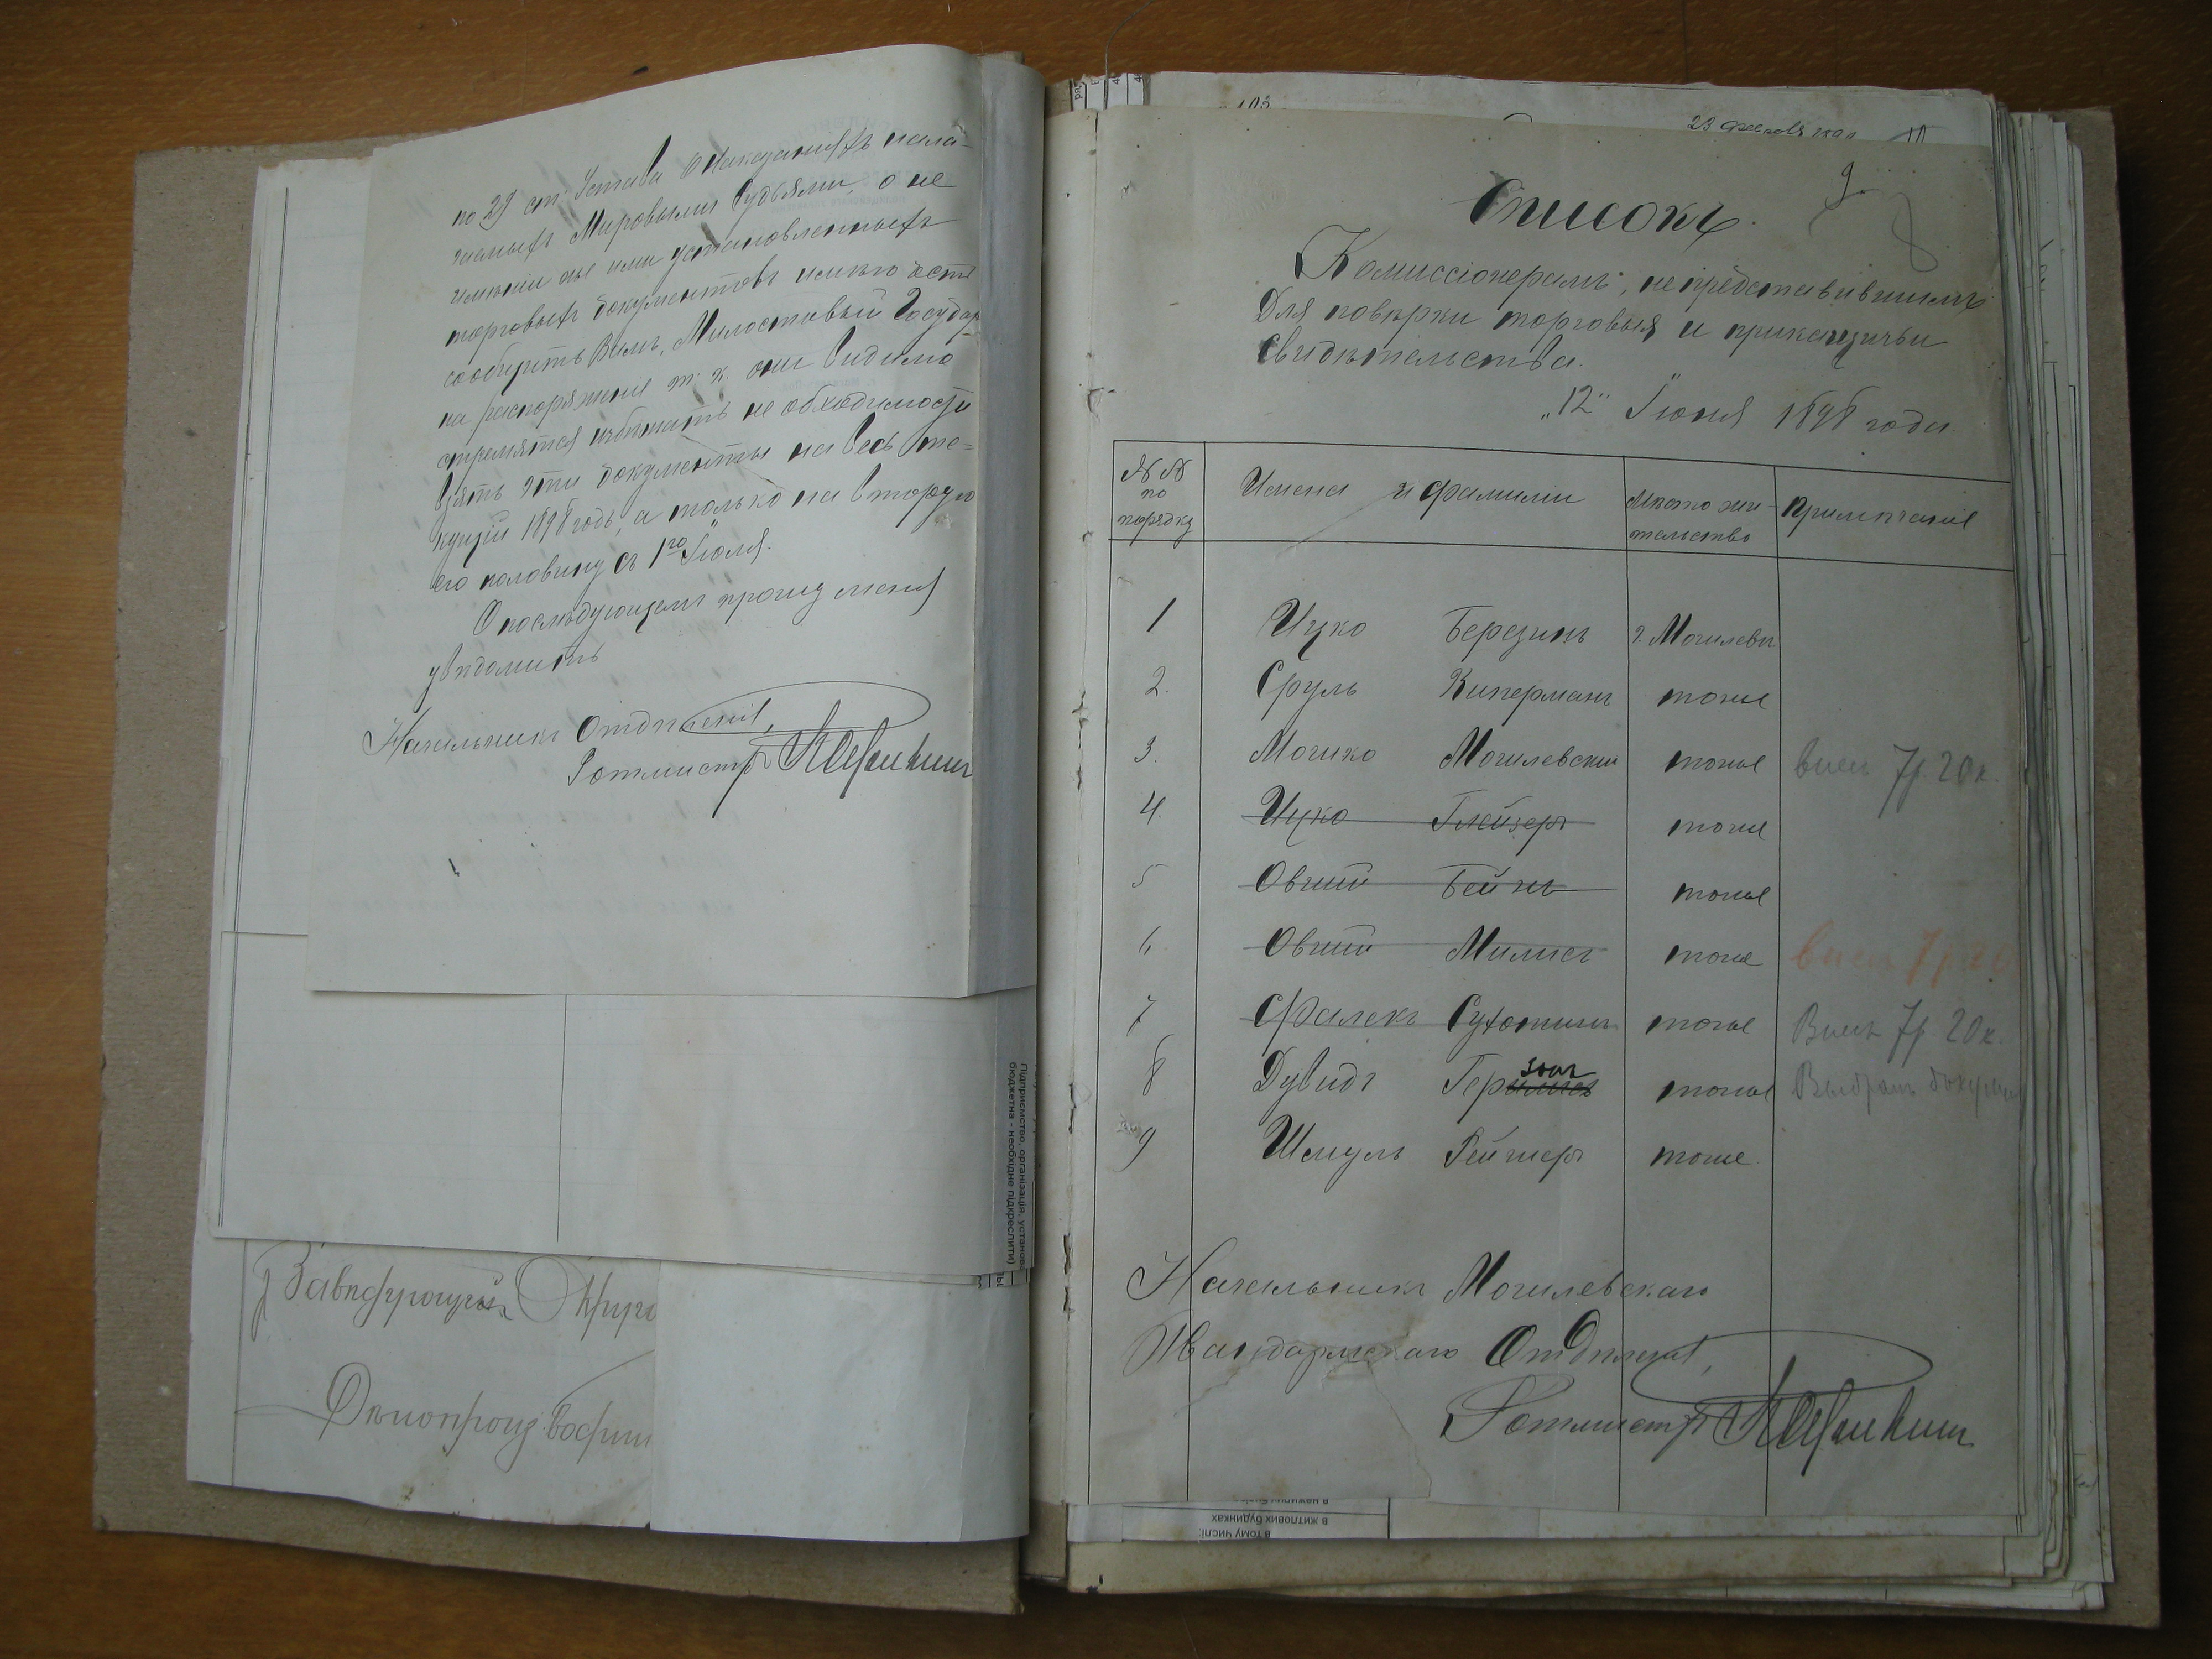 по 29 ст. Устава О Наказаніяхъ нала-
гаемыхъ Мировыми Судьями, о не
имѣніи ые ими установленныхъ
торговыхъ документовъ имѣю честь
сообщить Вамъ, Милостивый Государ
на распоряженіе т. к. они видимо
стремятся избѣжать не обходимости
взять эти документы на весь те-
кущій 1898 годъ, а только на вторую
его половину съ 1го Іюля.
О послѣдующемъ прошу меня
увѣдомить
Начальникъ Отдѣленія,
Ротмистръ
Завѣдующій
Дѣлопроизводи
Підприємство, організація, установа
бюджетна - необхідне підкреслити)
103
9
Списокъ.
Комиссіонерамъ, не представившимъ
для повѣрки торговыя и прикащичьи
свидѣтельства.
"12" Іюня 1898 года
№№ по порядку
Имена и фамиліи
Мѣсто жи-тельство
Примѣчаніе
1 Ицко Березинъ г. Могилевъ
2. Сруль Киперманъ тоже
3. Мошко Могилевскій тоже внес 7р. 20к.
4. Ицко Глейзеръ тоже
5 Овший тоже
6. Овший тоже внес 7р 20
7 Фалекъ Сухотинъ тоже Внесъ 7р 20к.
8 Дувидъ Герзонъ тоже Выбралъ докумен
9 Шмуль тоже.
Начальникъ Могилевскаго
Жандармскаго Отдѣленія,
Ротмистръ
в тому числі:
в житлових будинках